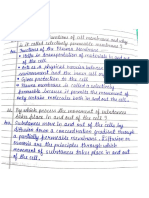 functions of cell membrane and why
is it called selectively permeable membrane ?
Ans Functions of the Plasma Membrane -
• Helps in transportation of materials in and out
of the cell.
• Acts as a physical barrier between
environment and the inner cell
• Gives protection to the cell.
• Plasma membrane is called a selectively
permeable because it permits the movement of
only certain molecules both in and out the cell.
By which process the movement of substance
takes place in and out of the cell ?
Ans Substances move in and out of the cells by
diffusion down a concentration gradient through
a partially permeable membrane. Diffusion in
osmosis are the principles through which
movement of substance takes place in and out
of the cell.